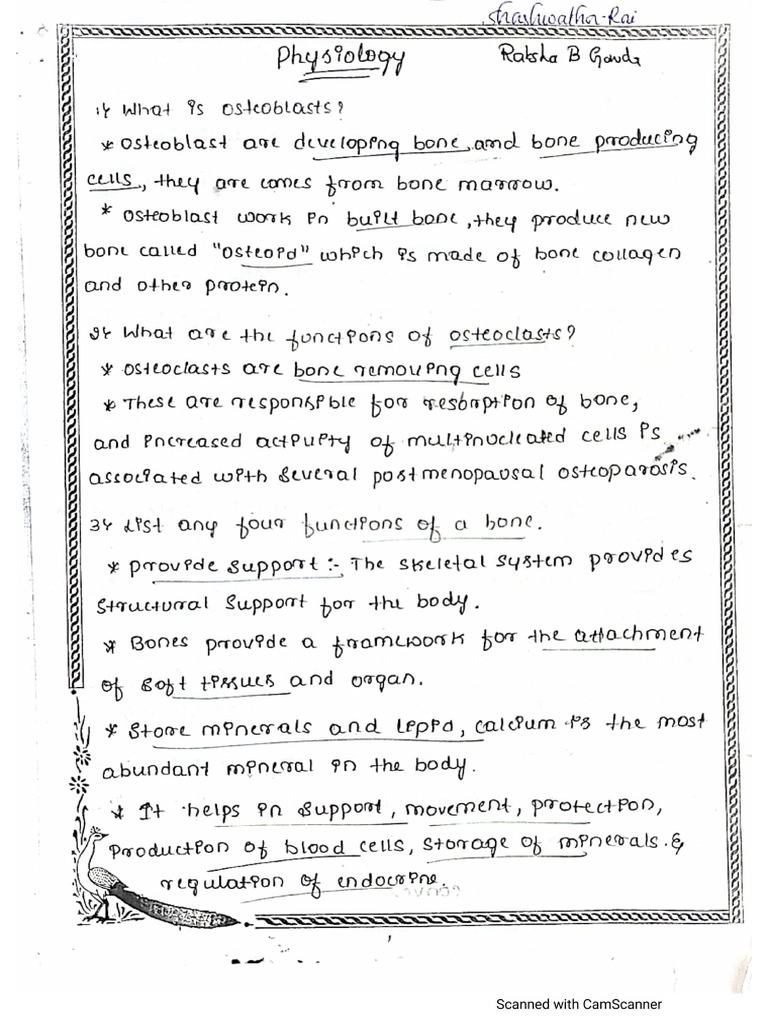 Shashwatha Rai
Physiology
Raksha B Gowda
1) What is osteoblasts?
* Osteoblast are developing bone, and bone producing
cells, they are comes from bone marrow.
* Osteoblast work in built bone, they produce new
bone called "osteoid" which is made of bone collagen
and other protein.
2) What are the functions of osteoclasts?
* Osteoclasts are bone removing cells
* These are responsible for resorption of bone,
and increased activity of multinucleated cells is
associated with several postmenopausal osteoparosis.
3) List any four functions of a bone.
* Provide support :- The skeletal system provides
structural support for the body.
* Bones provide a framework for the attachment
of soft tissues and organ.
* Store minerals and lipid, calcium is the most
abundant mineral in the body.
* It helps in support, movement, protection,
production of blood cells, storage of minerals. &
regulation of endocrine.
1
Scanned with CamScanner